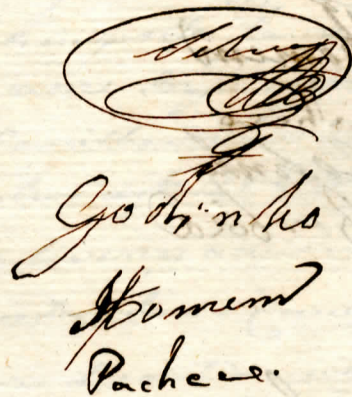 Godinho
Homem
Pacheco.